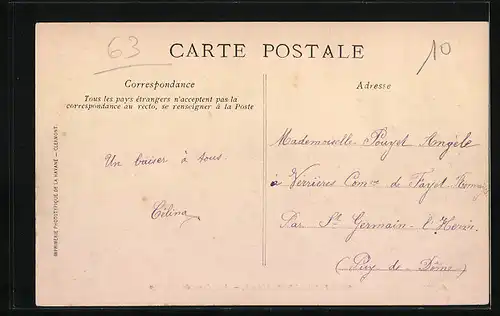 63
10
CARTE POSTALE
Correspondance
Tous les pays étrangers n'acceptent pas la
correspondance au recto, se renseigner à la Poste
Adresse
Un baiser à tous.
Célina
Mademoiselle Pouyet Angèle
à Verrières Com⁽ⁿᵉ⁾ de Fayet-Ronnay
Par St Germain-l'Herm.
(Puy de Dôme)
IMPRIMERIE PHOTOTYPIQUE DE LA HAVANE — CLERMONT.